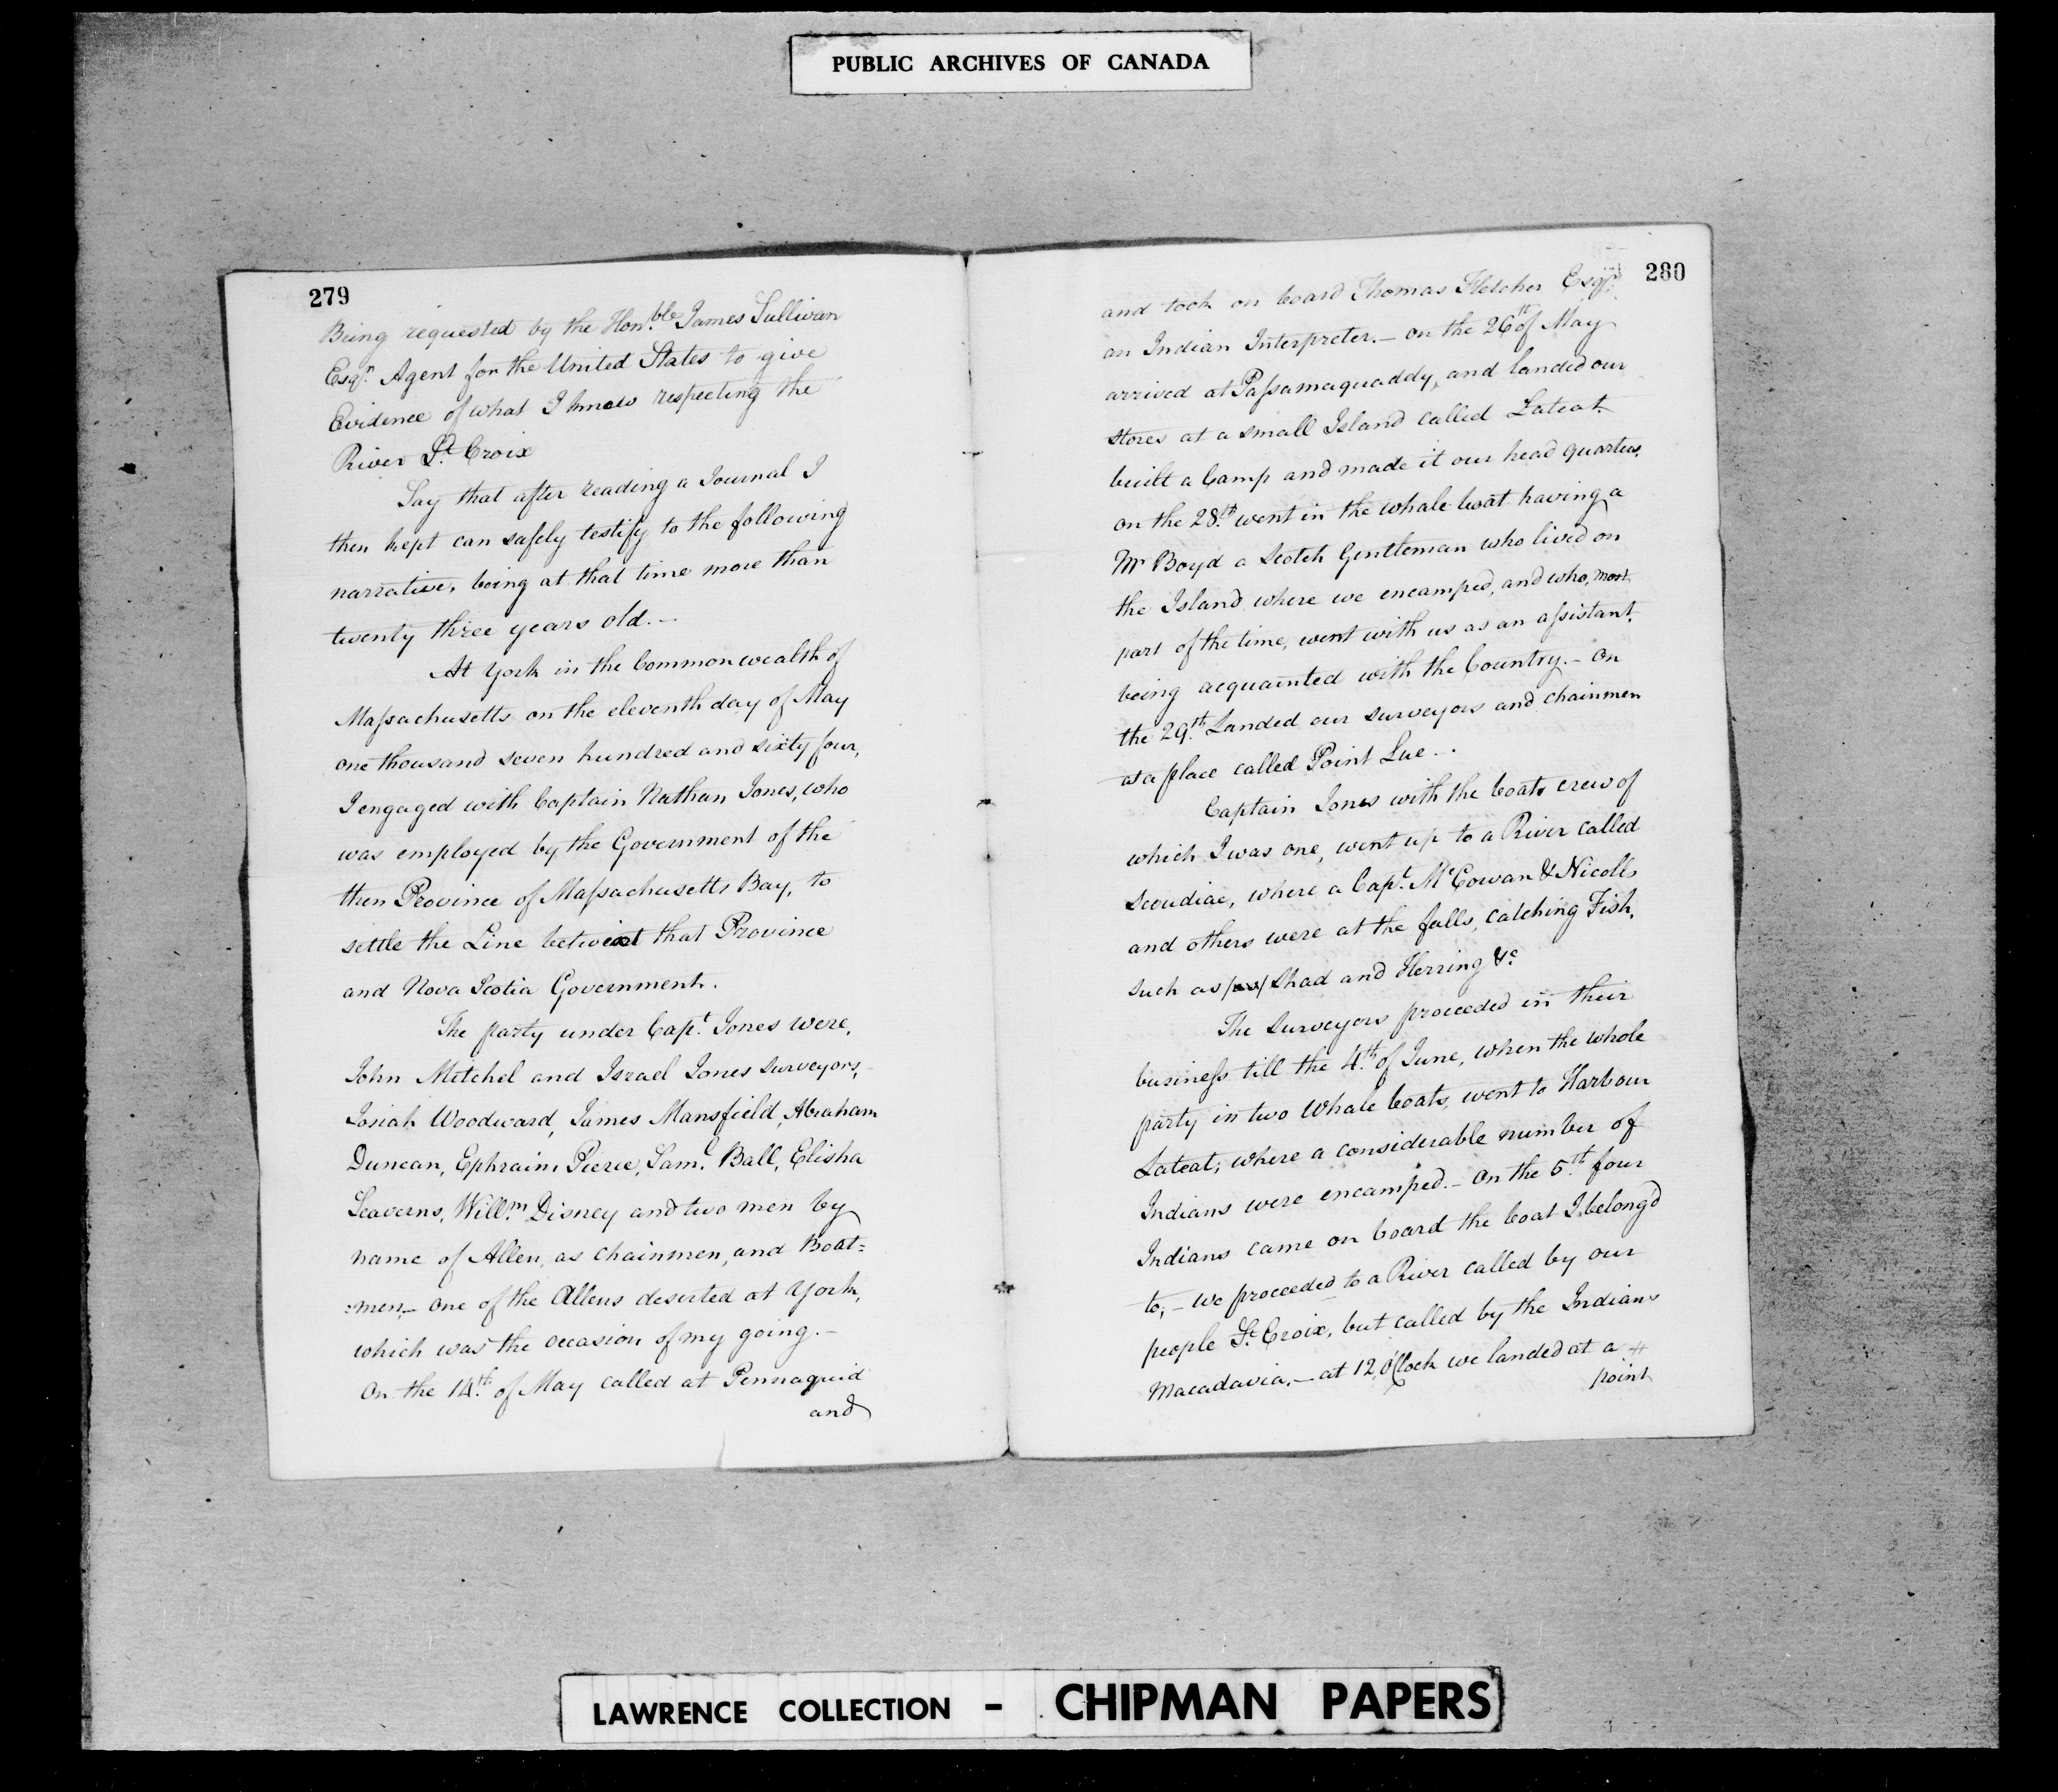 PUBLIC ARCHIVES OF CANADA
279
Being requested by the Hon.ble James Sullivan
Esqr. Agent for the United States to give
Evidence of what I knew respecting the
River St. Croix
Say that after reading a Journal I
then kept can safely testify to the following
narrative, being at that time more than
twenty three years old.–
At York in the Commonwealth of
Massachusetts on the eleventh day of May
one thousand seven hundred and sixty four,
I engaged with Captain Nathan Jones, who
was employed by the Government of the
then Province of Massachusetts Bay, to
settle the Line betwixt that Province
and Nova Scotia Government.
The party under Capt. Jones were,
John Mitchel and Israel Jones Surveyors,
Josiah Woodward, James Mansfield, Abraham
Duncan, Ephraim Pierce, Saml. Ball, Elisha
Seaverns, Willm. Disney and two men by
name of Allen, as chainmen, and Boat=
=men,– one of the Allens deserted at York,
which was the occasion of my going.–
On the 14th. of May called at Pennaquid
and
280
and took on board Thomas Fletcher Esqr.
an Indian Interpreter.– on the 26th of May
arrived at Passamaquaddy, and landed our
stores at a small Island called Lateat.
built a Camp and made it our head quarters.
on the 28th. went in the whale boat having a
Mr Boyd a Scotch Gentleman who lived on
the Island where we encamped, and who, most
part of the time, went with us as an assistant,
being acquainted with the Country.– On
the 29th. Landed our surveyors and chainmen
at a place called Point Lue –.
Captain Jones with the boats crew of
which I was one, went up to a River called
Scoudiac, where a Capt. McCowan & Nicolls
and others were at the falls, catching Fish,
such as Shad and Herring &c
The Surveyors proceeded in their
business till the 4th. of June, when the whole
party in two Whale boats, went to Harbour
Lateat; where a considerable number of
Indians were encamped.– On the 5th. four
Indians came on board the boat I belong'd
to;– we proceeded to a River called by our
people St. Croix, but called by the Indians
Macadavia,– at 12, O'Clock we landed at a
point
LAWRENCE COLLECTION - CHIPMAN PAPERS